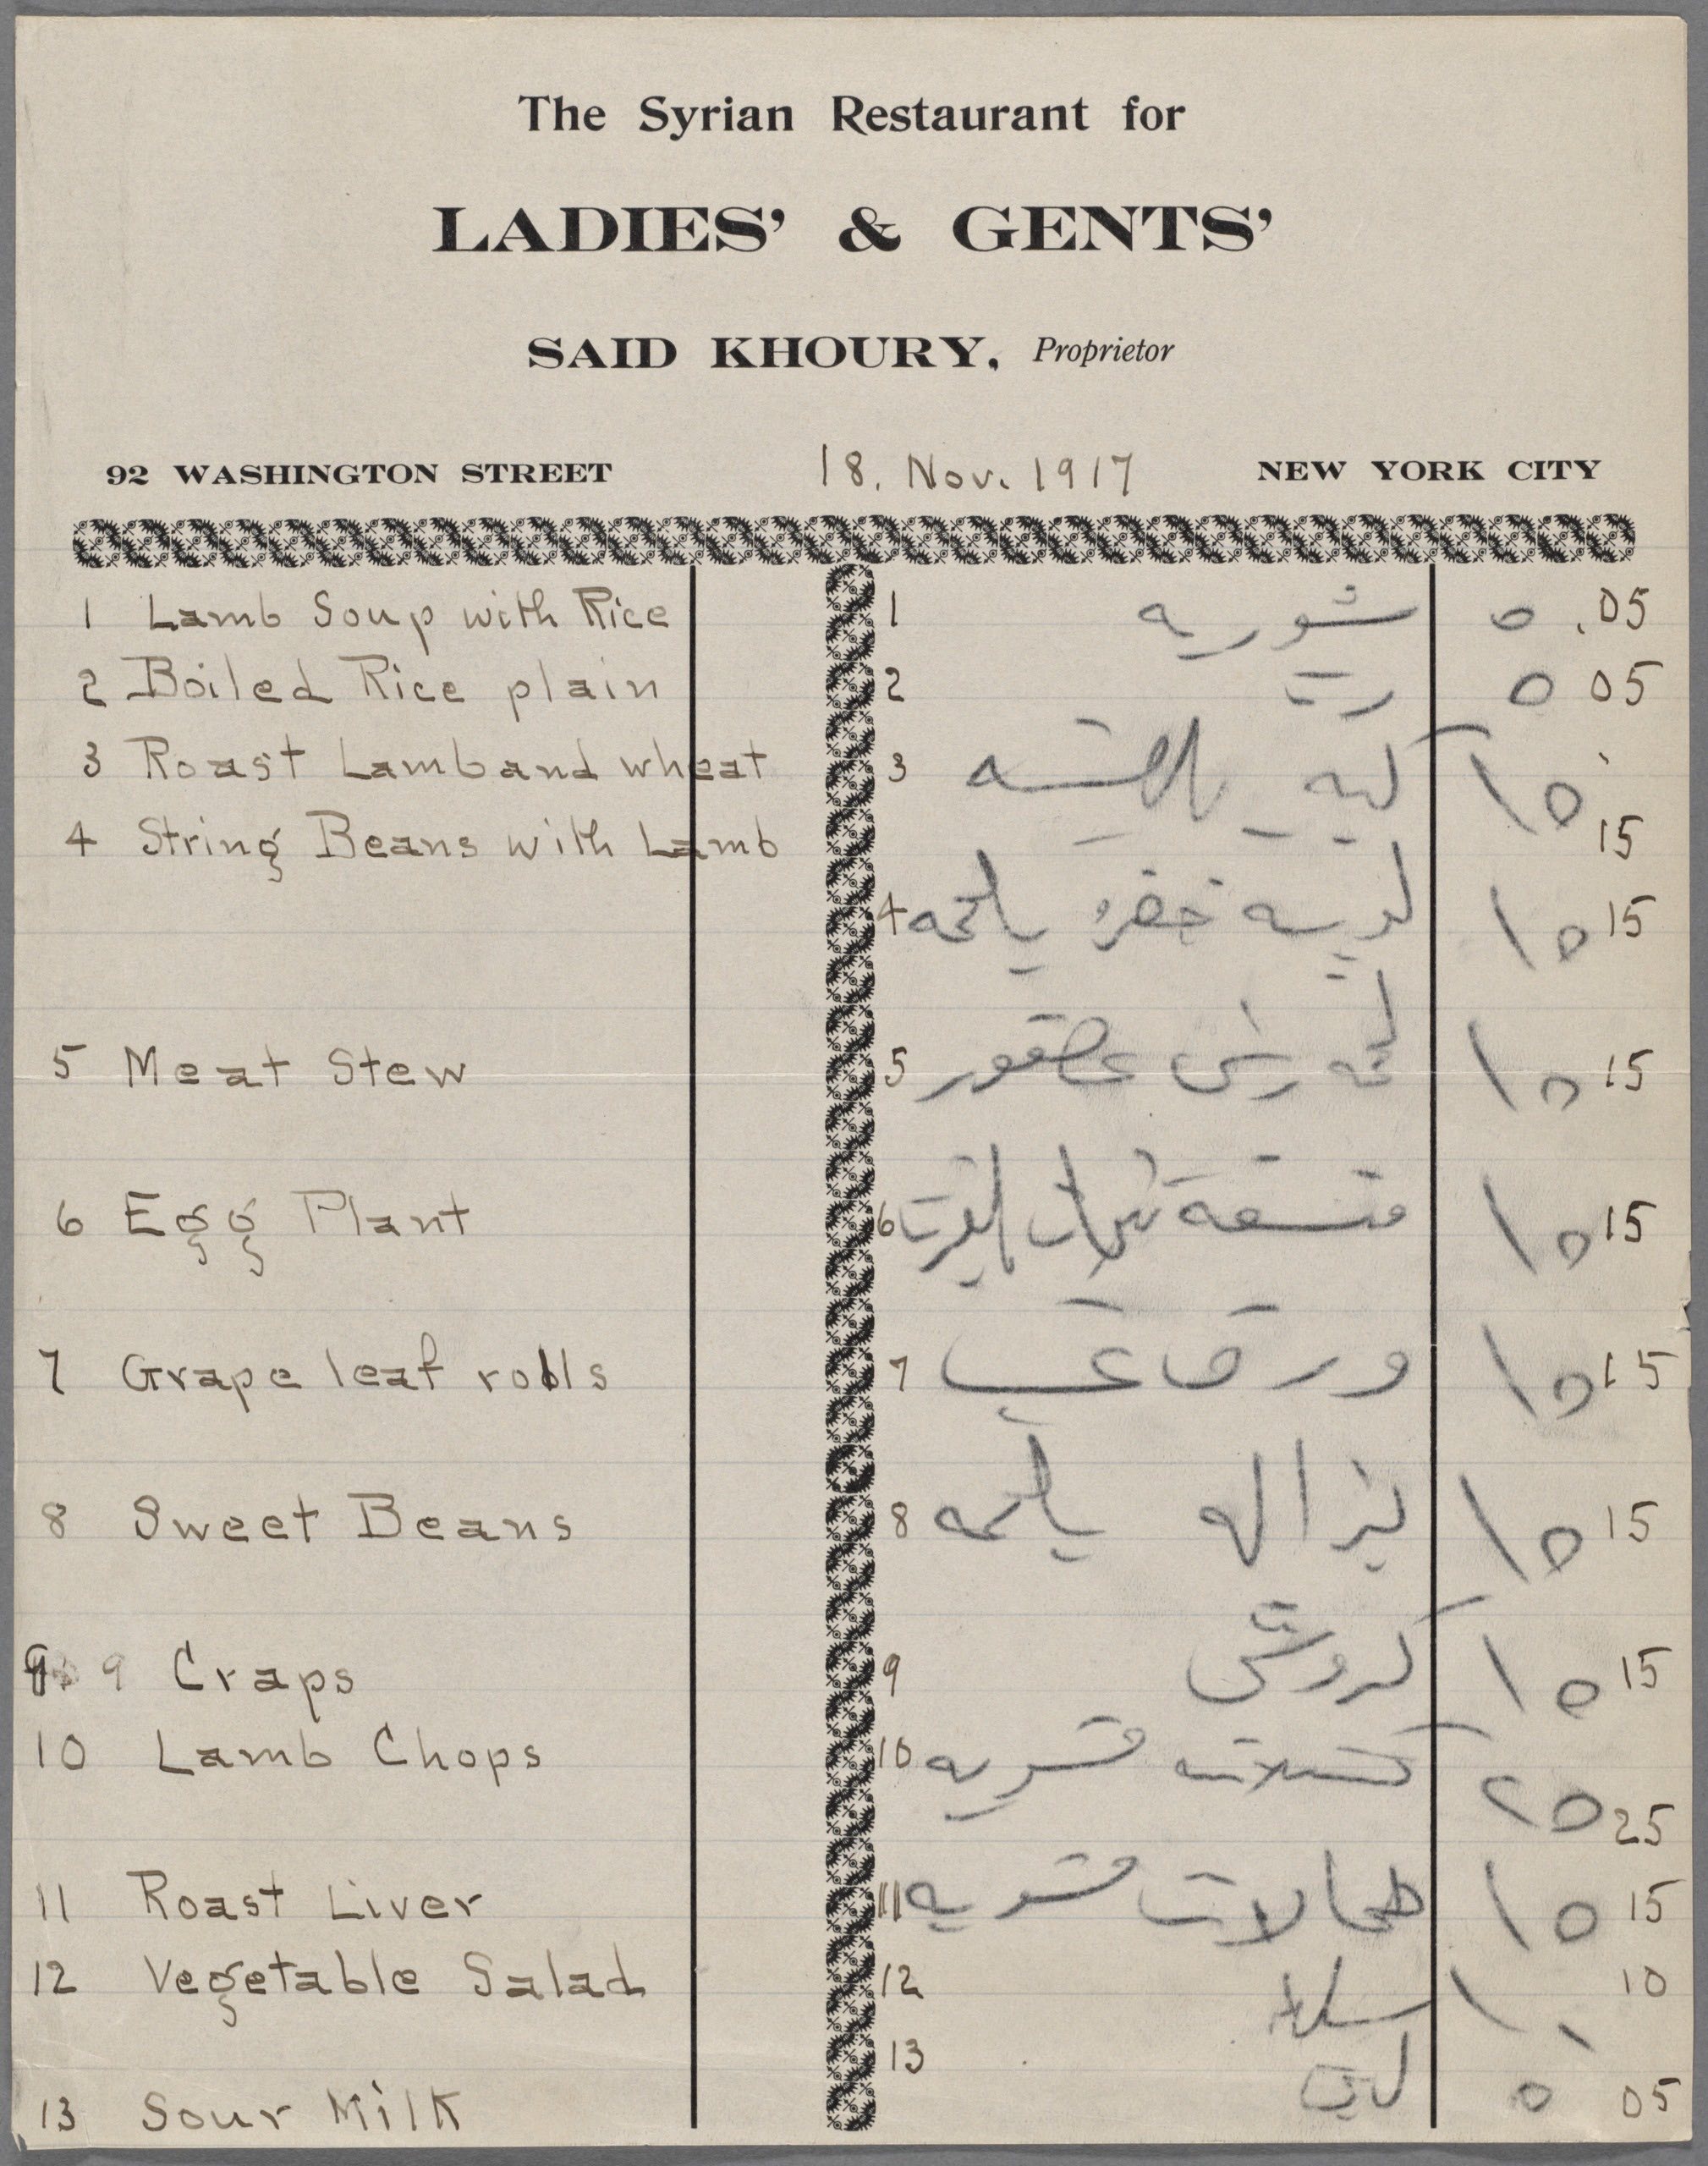 The Syrian Restaurant for
LADIES' & GENTS'
SAID KHOURY, Proprietor
92 WASHINGTON STREET 18. Nov. 1917 NEW YORK CITY
1 Lamb Soup with Rice 1 شوربه ٥ .05
2 Boiled Rice plain 2 رز ٥ 05
3 Roast Lamb and wheat 3 كبه بالصينيه ١٥ 15
4 String Beans with Lamb
4 لوبيه خضره بلحمه ١٥ 15
5 Meat Stew 5 لحمه راس عصفور ١٥ 15
6 Egg Plant 6 ١٥ 15
7 Grape leaf rolls 7 ورق عنب ١٥ 15
8 Sweet Beans 8 بزاليه بلحمه ١٥ 15
9 9 Craps 9 كروش ١٥ 15
10 Lamb Chops 10 كستلاته مشويه ٢٥ 25
11 Roast Liver 11 طحالات مشويه ١٥ 15
12 Vegetable Salad 12 سلطه ١٠ 10
13 Sour Milk 13 لبن ٥ 05